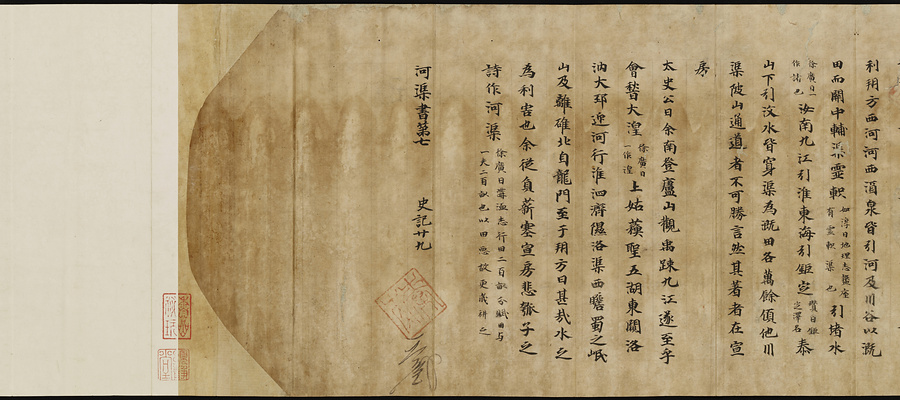 利朔方西河河西酒泉皆引河及川谷以溉
田而關中輔渠靈軹如淳曰地理志盩厔有靈軹渠也引堵水
徐廣曰一作諸也汝南九江引淮東海引鉅定瓚曰鉅定澤名泰
山下引汶水皆穿渠為溉田各萬餘頃他川
渠陂山通道者不可勝言然其著者在宣
房
太史公曰余南登廬山觀禹踈九江遂至乎
會嵇大湟徐廣曰一作湿上姑蘓望五湖東闚洛
汭大邳迎河行淮泗濟濕洛渠西瞻蜀之岷
山及離碓北自龍門至于朔方曰甚哉水之
為利害也余從負薪塞宣房悲瓠子之
詩作河渠徐廣曰溝洫志行田二百畝分賦田与一夫二百畝也以田悪故更歳耕之
河渠書第七 史記廿九